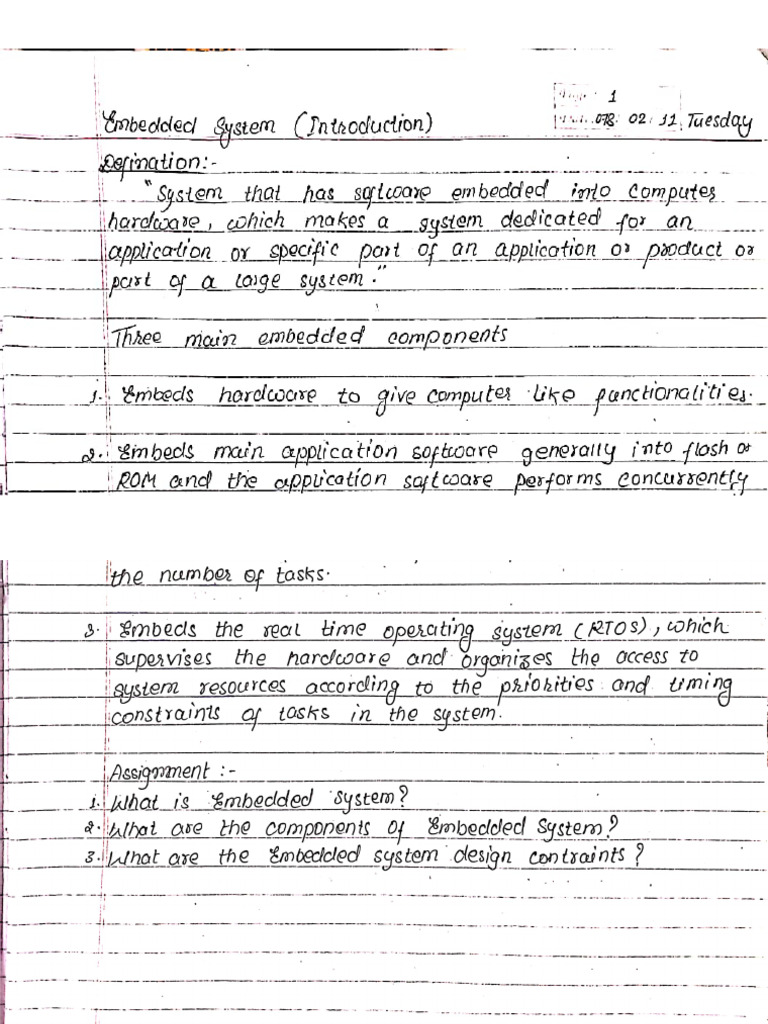 1
Embedded System (Introduction)
078 02 11, Tuesday
Defination:-
"System that has software embedded into computer
hardware, which makes a system dedicated for an
application or specific part of an application or product or
part of a large system."
Three main embedded components
1. Embeds hardware to give computer like functionalities.
2. Embeds main application software generally into flash or
ROM and the application software performs concurrently
the number of tasks.
3. Embeds the real time operating system (RTOS), which
supervises the hardware and organizes the access to
system resources according to the priorities and timing
constraints of tasks in the system.
Assignment :-
1. What is Embedded System?
2. What are the components of Embedded System?
3. What are the Embedded system design contraints?